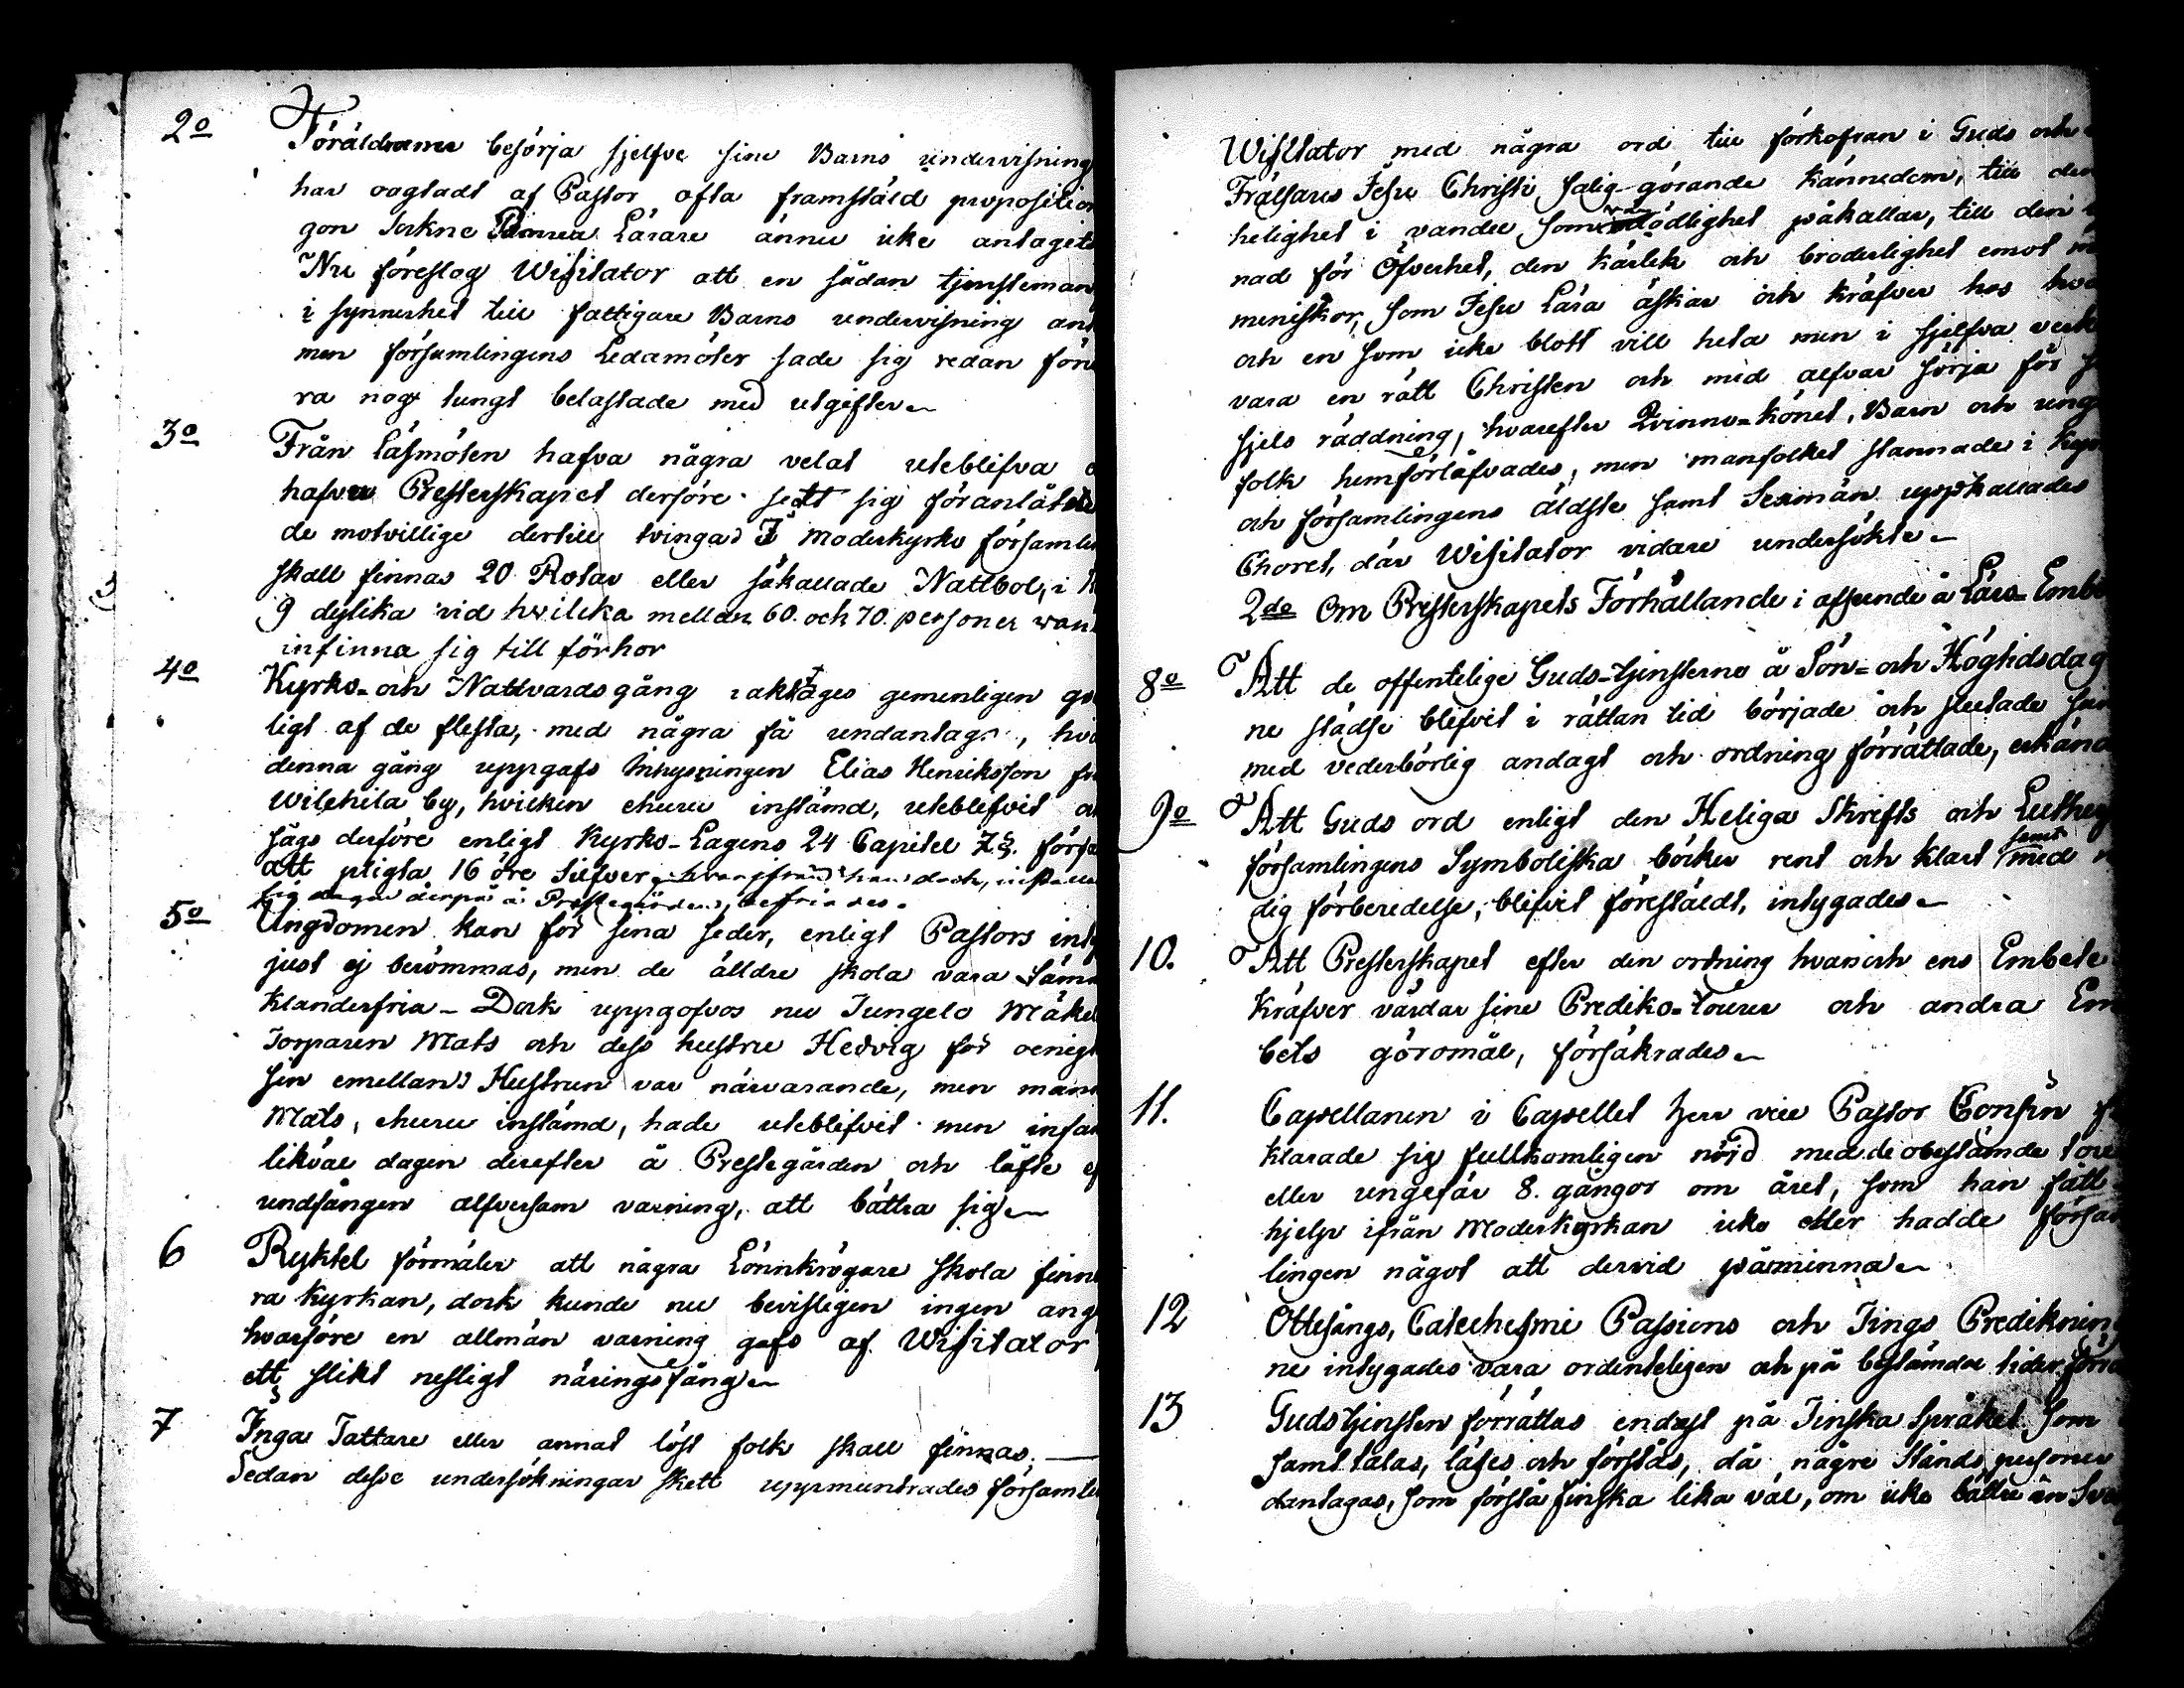 2o Föräldrarne besörja sjelfve sine Barns undervisning
har oagtadt af Pastor ofta framstäld proposition
gon Sokne Barna Lärare ännu icke antagets
Nu föreslog Wisitator att en sådan tjensteman
i synnerhet till fattigare Barns undervisning an
men församlingens Ledamöter sade sig redan före
ra nog tungt belastade med utgifter
3o Från Läsmöten hafva några velat uteblifva
hafver Presterskapet derföre sett sig föranlåtit
de motvillige dertill tvinga. I Moderkyrko församl
skall finnas 20 Rotar eller såkallade Nattbol, i
9 dylika vid hvilcka mellan 60. och 70. personer
infinna sig till förhor
4o Kyrko- och Nattvardsgång iakttages gemenligen
ligt af de flesta, med några få undantag, hva
denna gång uppgafs Inhysningen Elias Henriksson
Wilehila by, hvilken ehuru instämd, uteblifvit
sägs derföre enligt Kyrko-Lagens 24 Capitel 7.§. förfa
att pligta 16 öre Silfver, hvarifrån han dock,
sig dagen derpå å Prestegården, befriades.
5o Ungdomen kan för sina seder, enligt Pastors
just ej berömmas, men de älldre skola vara
klanderfria - Dock uppgofvos nu Jungelo
Torparen Mats och dess hustru Hedvig för oenig
sin emellan. Hustrun var närvarande, men
Mats, ehuru instämd, hade uteblifvit men
likväl dagen derefter å Prestegården och löfte
undfången alfversam varning, att bättra sig
6 Ryktet förmäler att några Lönnkrögare skola finn
ra Kyrkan, dock kunde nu bevisligen ingen ang
hvarföre en allmän varning gafs af Wisitator
ett slikt nesligt näringsfång
7 Inga Tattare eller annat löst folk skall finnas.
Sedan desse undersökningar skett uppmuntrades församl
Wisitator med några ord till förkofran i Guds och
Frälsares Jesu Christi salig-görande kännedom, till den
helighet i vandel som odödlighet påkallar, till den
nad för Öfverhet, den kärlek och broderlighet emot
meniskor, som Jesu Lära äskar och kräfver hos
och en som icke blott vill heta men i sjelfva verk
vara en rätt Christen och med alfvar sörja för
sjels räddning, hvarefter Qvinno-könet, Barn och ung
folk hemförlåfvades, men manfolket stannade i Kyr
och församlingens äldste samt Sexmän uppkallades
Choret, där Wisitator vidare undersökte
2do Om Presterskapets Förhållande i afseende å Läro-Emb
8o Att de offentelige Guds-tjensterne å Sön- och Högtidsdag
ne städse blifvit i rättan tid började och slutade
med vederbörlig andagt och ordning förrättade,
9o Att Guds ord enligt den Heliga Skrifts och
församlingens Symboliska böcker rent och klart samt med
dig förberedelse, blifvit föreställt, intygades
10. Att Presterskapet efter den ordning hvars och ens Embete
kräfver vårdar sine Prediko-tourer och andra Em
bets göromål, försäkrades
11. Capellanen i Capellet herr vice Pastor
klarade sig fullkomligen nöjd med de obestämde
eller ungefär 8. gångor om året, som han fått
hjelp ifrån Moderkyrkan icke eller hadde försam
lingen något att dervid påminna
12 Ottesångs, Catechesmi Passions och Tings Prediknin
ne intygades vara ordenteligen och på bestämda tider
13 Gudstjensten förrättas endast på Finska Språket som
samt talas, läses och förstås, då några Stånds personer
dantagas, som förstå finska lika väl, om icke bättre än